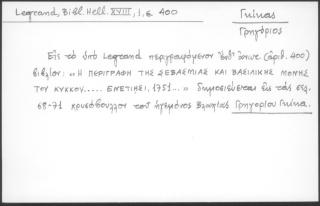 Legrand, Bibl. Hell. XVIII, 1, σ. 400
Γκίκας
Γρηγόριος
Εἰς τὸ ὑπὸ Legrand περιγραφόμενον (ἀριθ. 400)
βιβλίον: « Η ΠΕΡΙΓΡΑΦΗ ΤΗΣ ΣΕΒΑΣΜΙΑΣ ΚΑΙ ΒΑΣΙΛΙΚΗΣ ΜΟΝΗΣ
ΤΟΥ ΚΥΚΚΟΥ..... ΕΝΕΤΙΗΣΙ, 1751...» δημοσιεύεται εἰς τὰς σελ.
68-71 χρυσόβουλλον τοῦ ἡγεμόνος Βλαχίας Γρηγορίου Γκίκα.